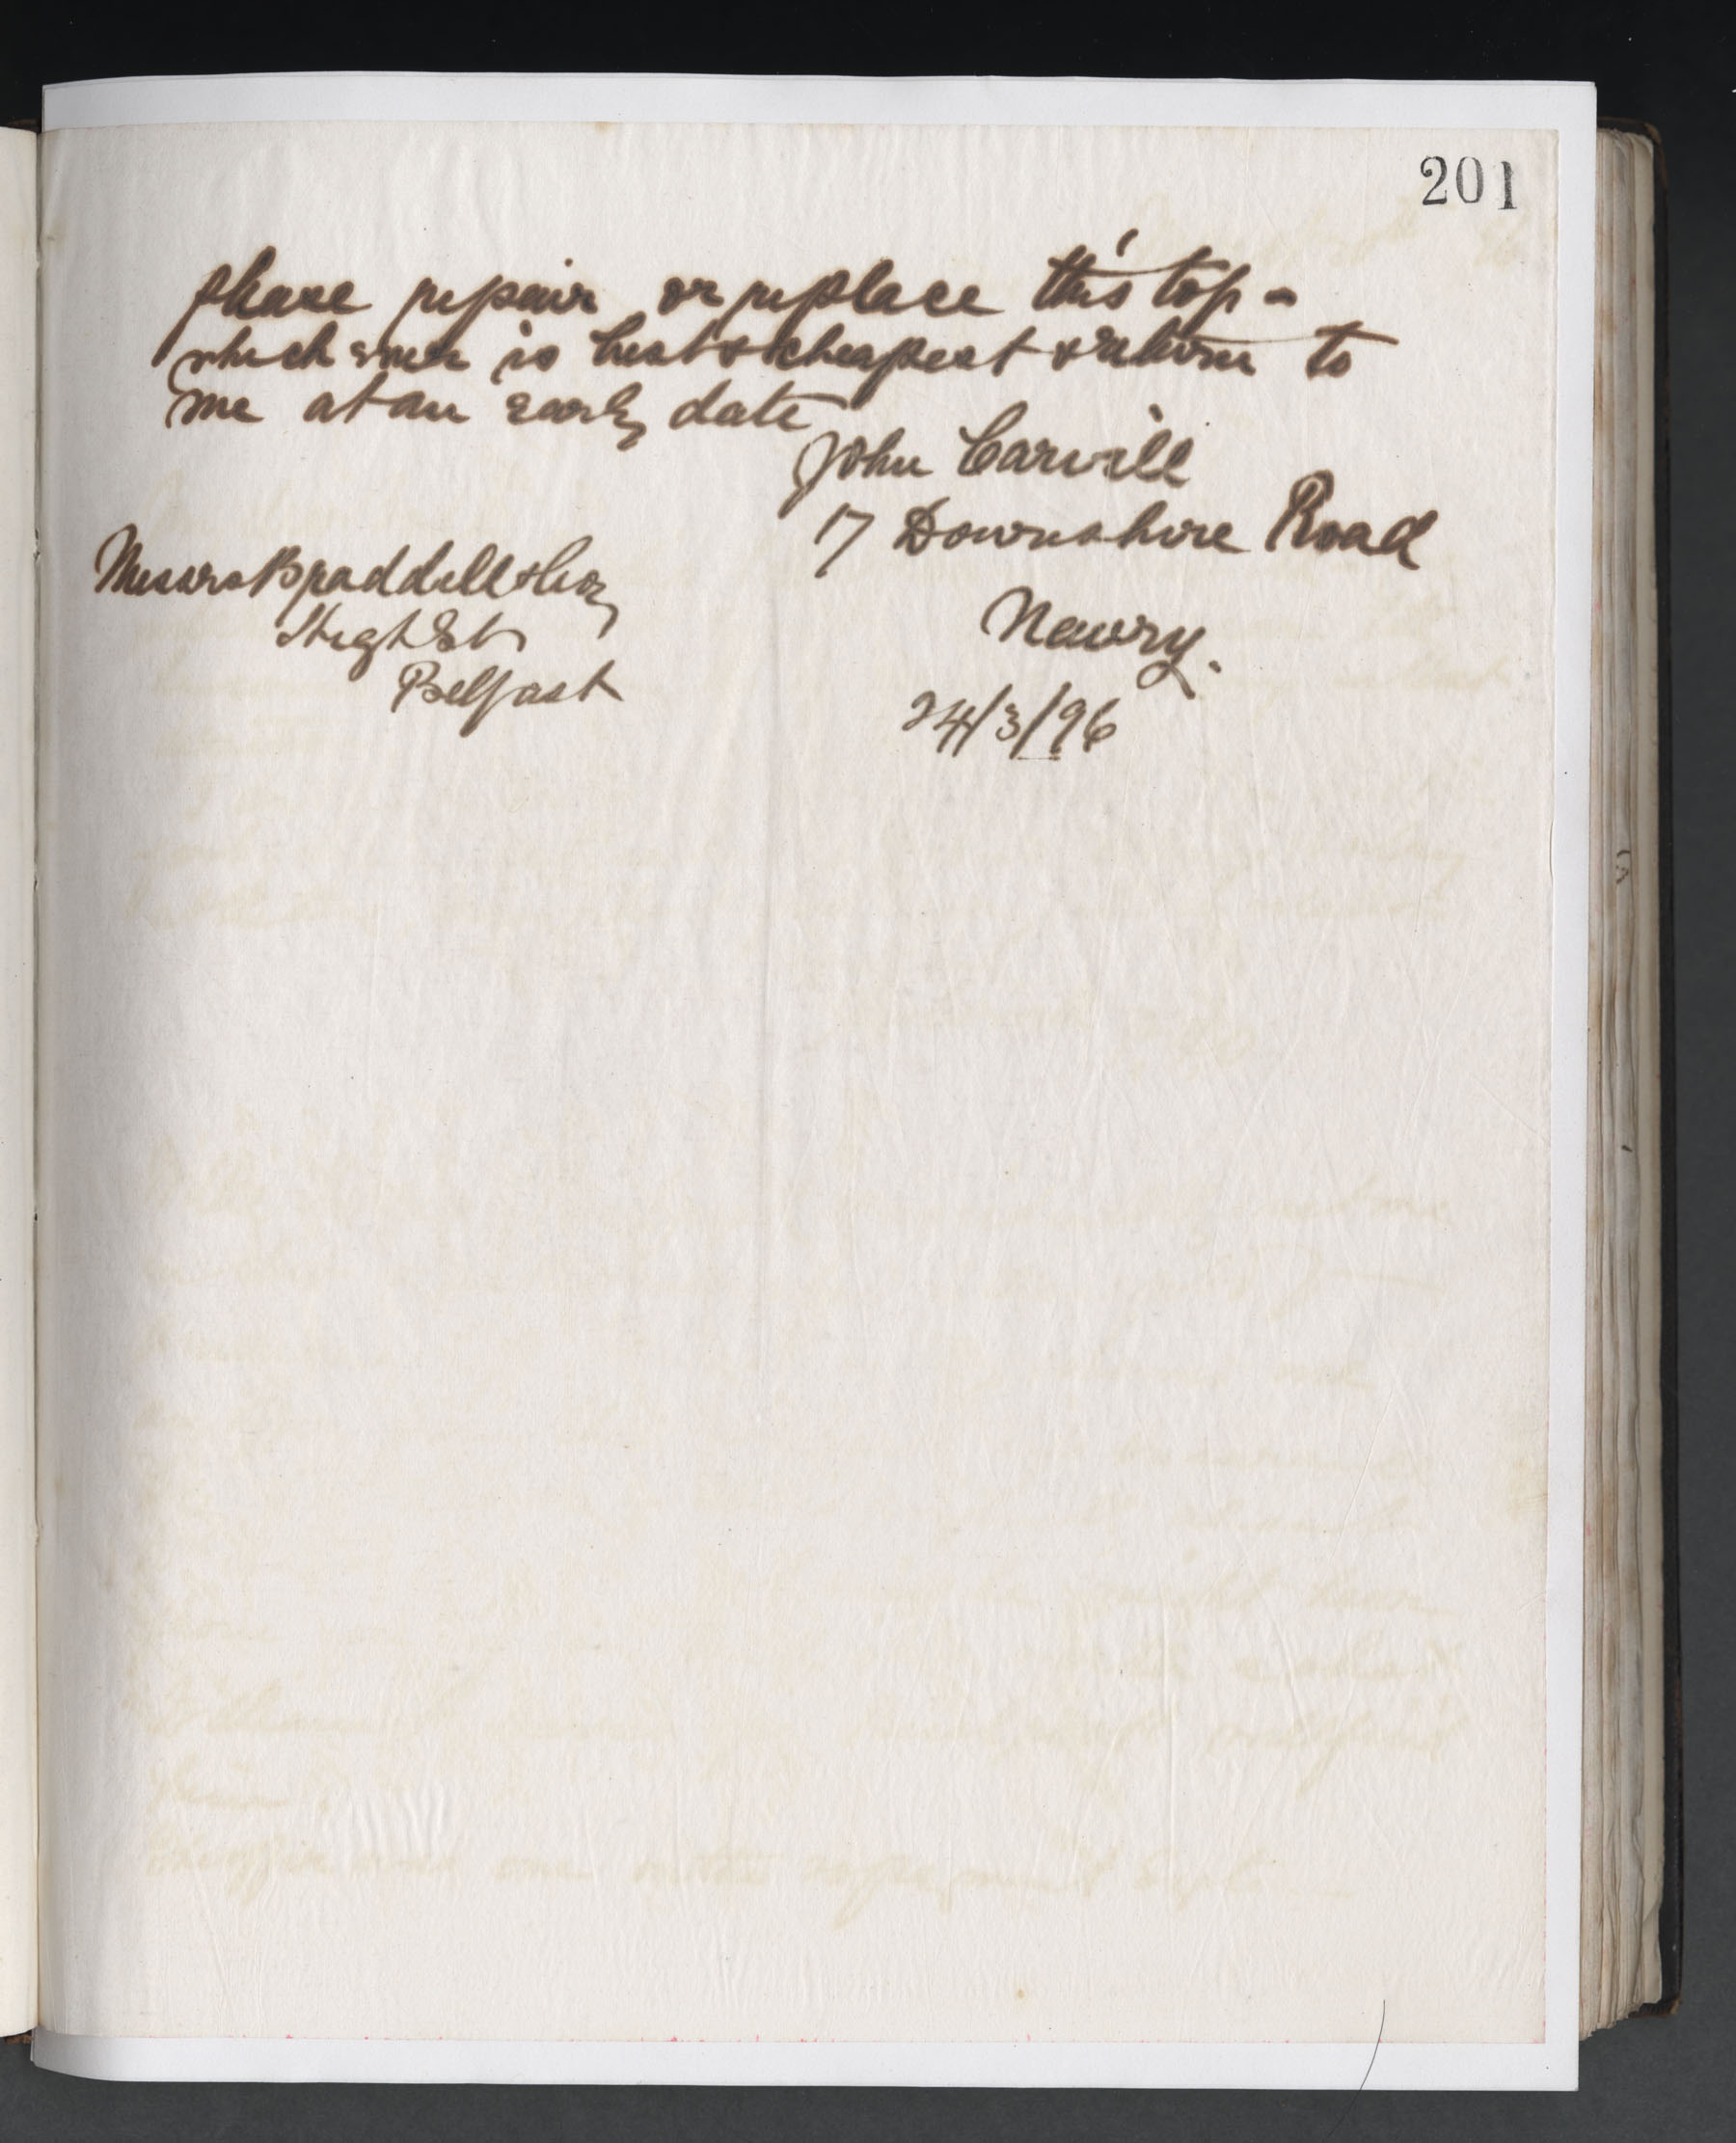 201
please repair or replace this top -
which ever is best & cheapest & return to
me at an early date
John Carvill
17 Downshire Road
Newry.
24/3/96
Messrs Braddell & Son
High St
Belfast